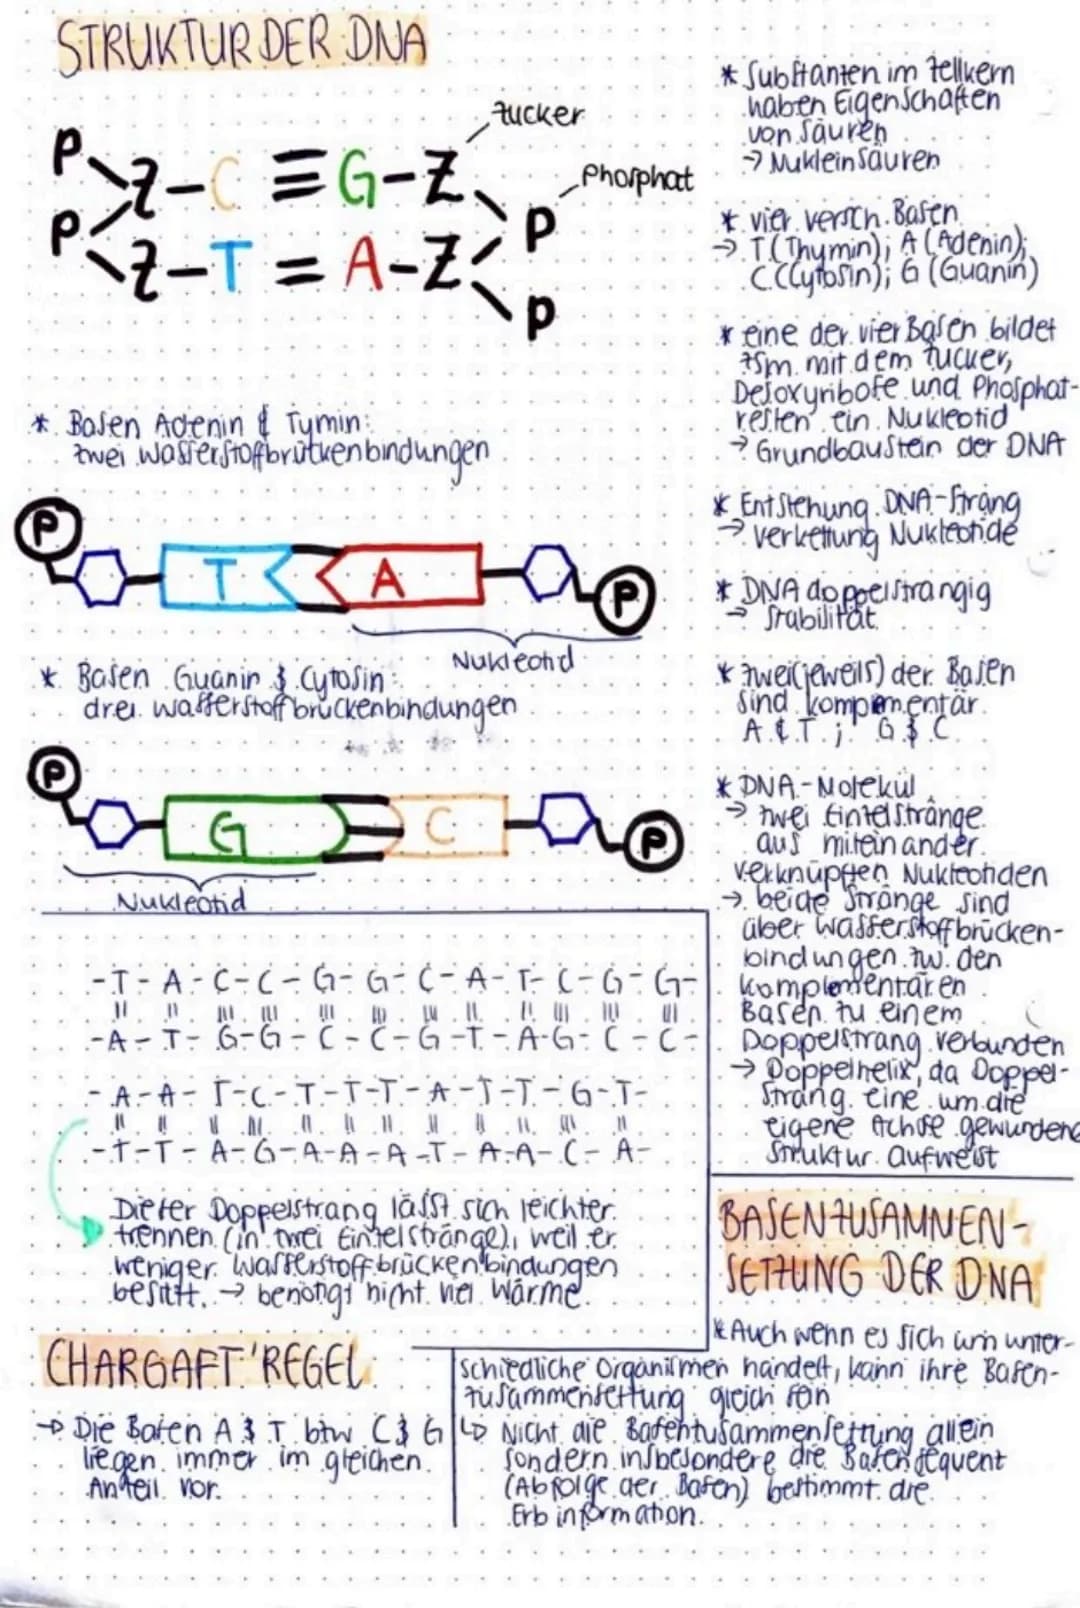 STRUKTUR DER DNA
Zucker
Phosphat
P
Z-C≡G-Z
P
P
Z-T=A-Z
P
* Basen Adenin & Tymin:
zwei Wasserstoffbrückenbindungen
P
T A
P
Nukleotid
* Basen Guanin & Cytosin:
drei Wasserstoffbrückenbindungen
P
G C
P
Nukleotid
-T-A-C-C-G-G-C-A-T-C-G-G-
-A-T-G-G-C-C-G-T-A-G-C-C-
-A-A-T-C-T-T-T-A-T-T-G-T-
-T-T-A-G-A-A-A-T-A-A-C-A-
Dieser Doppelstrang lässt sich leichter
trennen (in zwei Einzelstränge), weil er
weniger Wasserstoffbrückenbindungen
besitzt. → benötigt nicht viel Wärme.
CHARGAFT'REGEL
→ Die Basen A & T bzw C & G
liegen immer im gleichen
Anteil vor.
* Substanzen im Zellkern
haben Eigenschaften
von Säuren
→ Nukleinsäuren
* vier versch. Basen
→ T (Thymin); A (Adenin);
C (Cytosin); G (Guanin)
* eine der vier Basen bildet
zsm. mit dem Zucker,
Desoxyribose und Phosphat-
resten ein Nukleotid
→ Grundbaustein der DNA
* Entstehung DNA-Strang
→ Verkettung Nukleotide
* DNA doppelsträngig
→ Stabilität
* zwei (jeweils) der Basen
sind komplementär
A & T ; G & C
* DNA-Molekül
→ zwei Einzelstränge
aus miteinander
verknüpften Nukleotiden
→ beide Stränge sind
über Wasserstoffbrücken-
bindungen zw. den
komplementären
Basen zu einem
Doppelstrang verbunden
→ Doppelhelix, da Doppel-
strang eine um die
eigene Achse gewundene
Struktur aufweist
BASENZUSAMMEN-
SETZUNG DER DNA
* Auch wenn es sich um unter-
schiedliche Organismen handelt, kann ihre Basen-
zusammensetzung gleich sein
↳ Nicht die Basenzusammensetzung allein
sondern insbesondere die Basensequenz
(Abfolge der Basen) bestimmt die
Erbinformation.